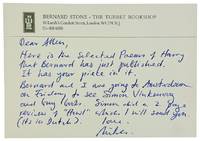 BERNARD STONE - THE TURRET BOOKSHOP
Dear Allen,
Here is the Selected Poems of Harry
that Bernard has just published.
It has your piece in it.
Bernard and I are going to Amsterdam
on Friday to see Simon Vinkenoog
and
Simon did a 2 page
review of "Howl" which I will send you
(it's in Dutch).
Love